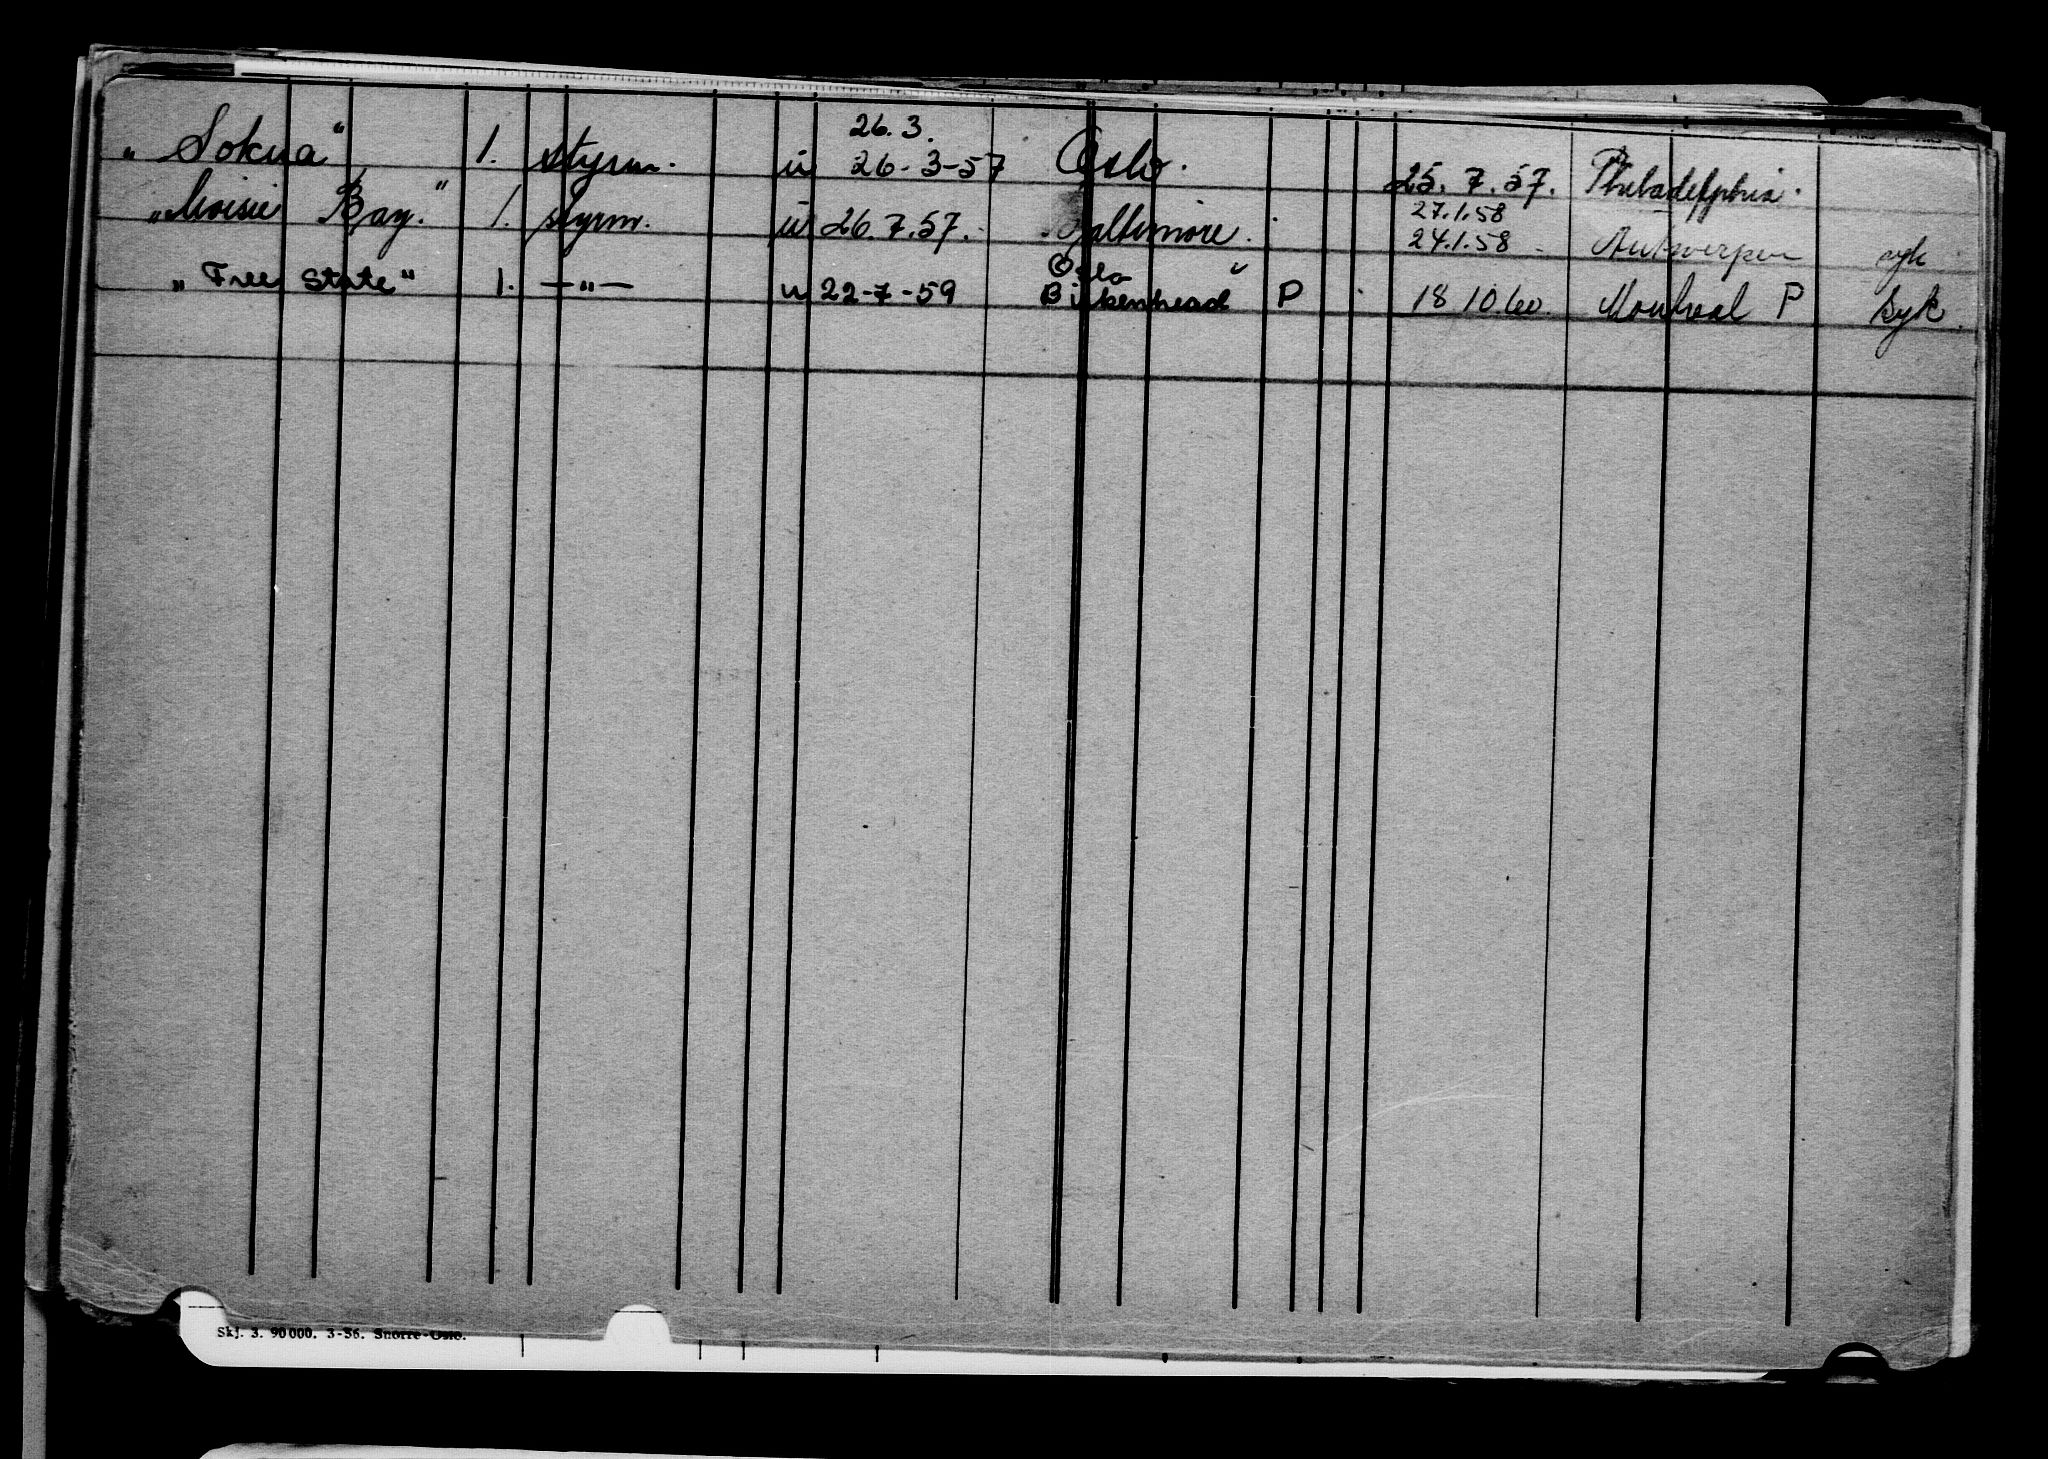 26.3.
„Sokna" 1. styrm. u 26-3-57 Oslo. 25.7.57. Philadelphia.
27.1.58
„Moisie Bay." 1. styrm. u 26.7.57. Baltimore. 24.1.58 - Antwerpen syk
Oslo
„Free State" 1. —"— u 22-7-59 Birkenhead P 18 10 60. Montreal P syk.
Skj. 3. 90000. 3-56. Snorre-Oslo.